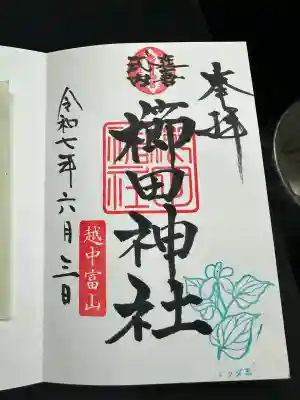 奉拝
延喜
式内
櫛田神社
越中富山
令和七年六月三日
ドクダミ